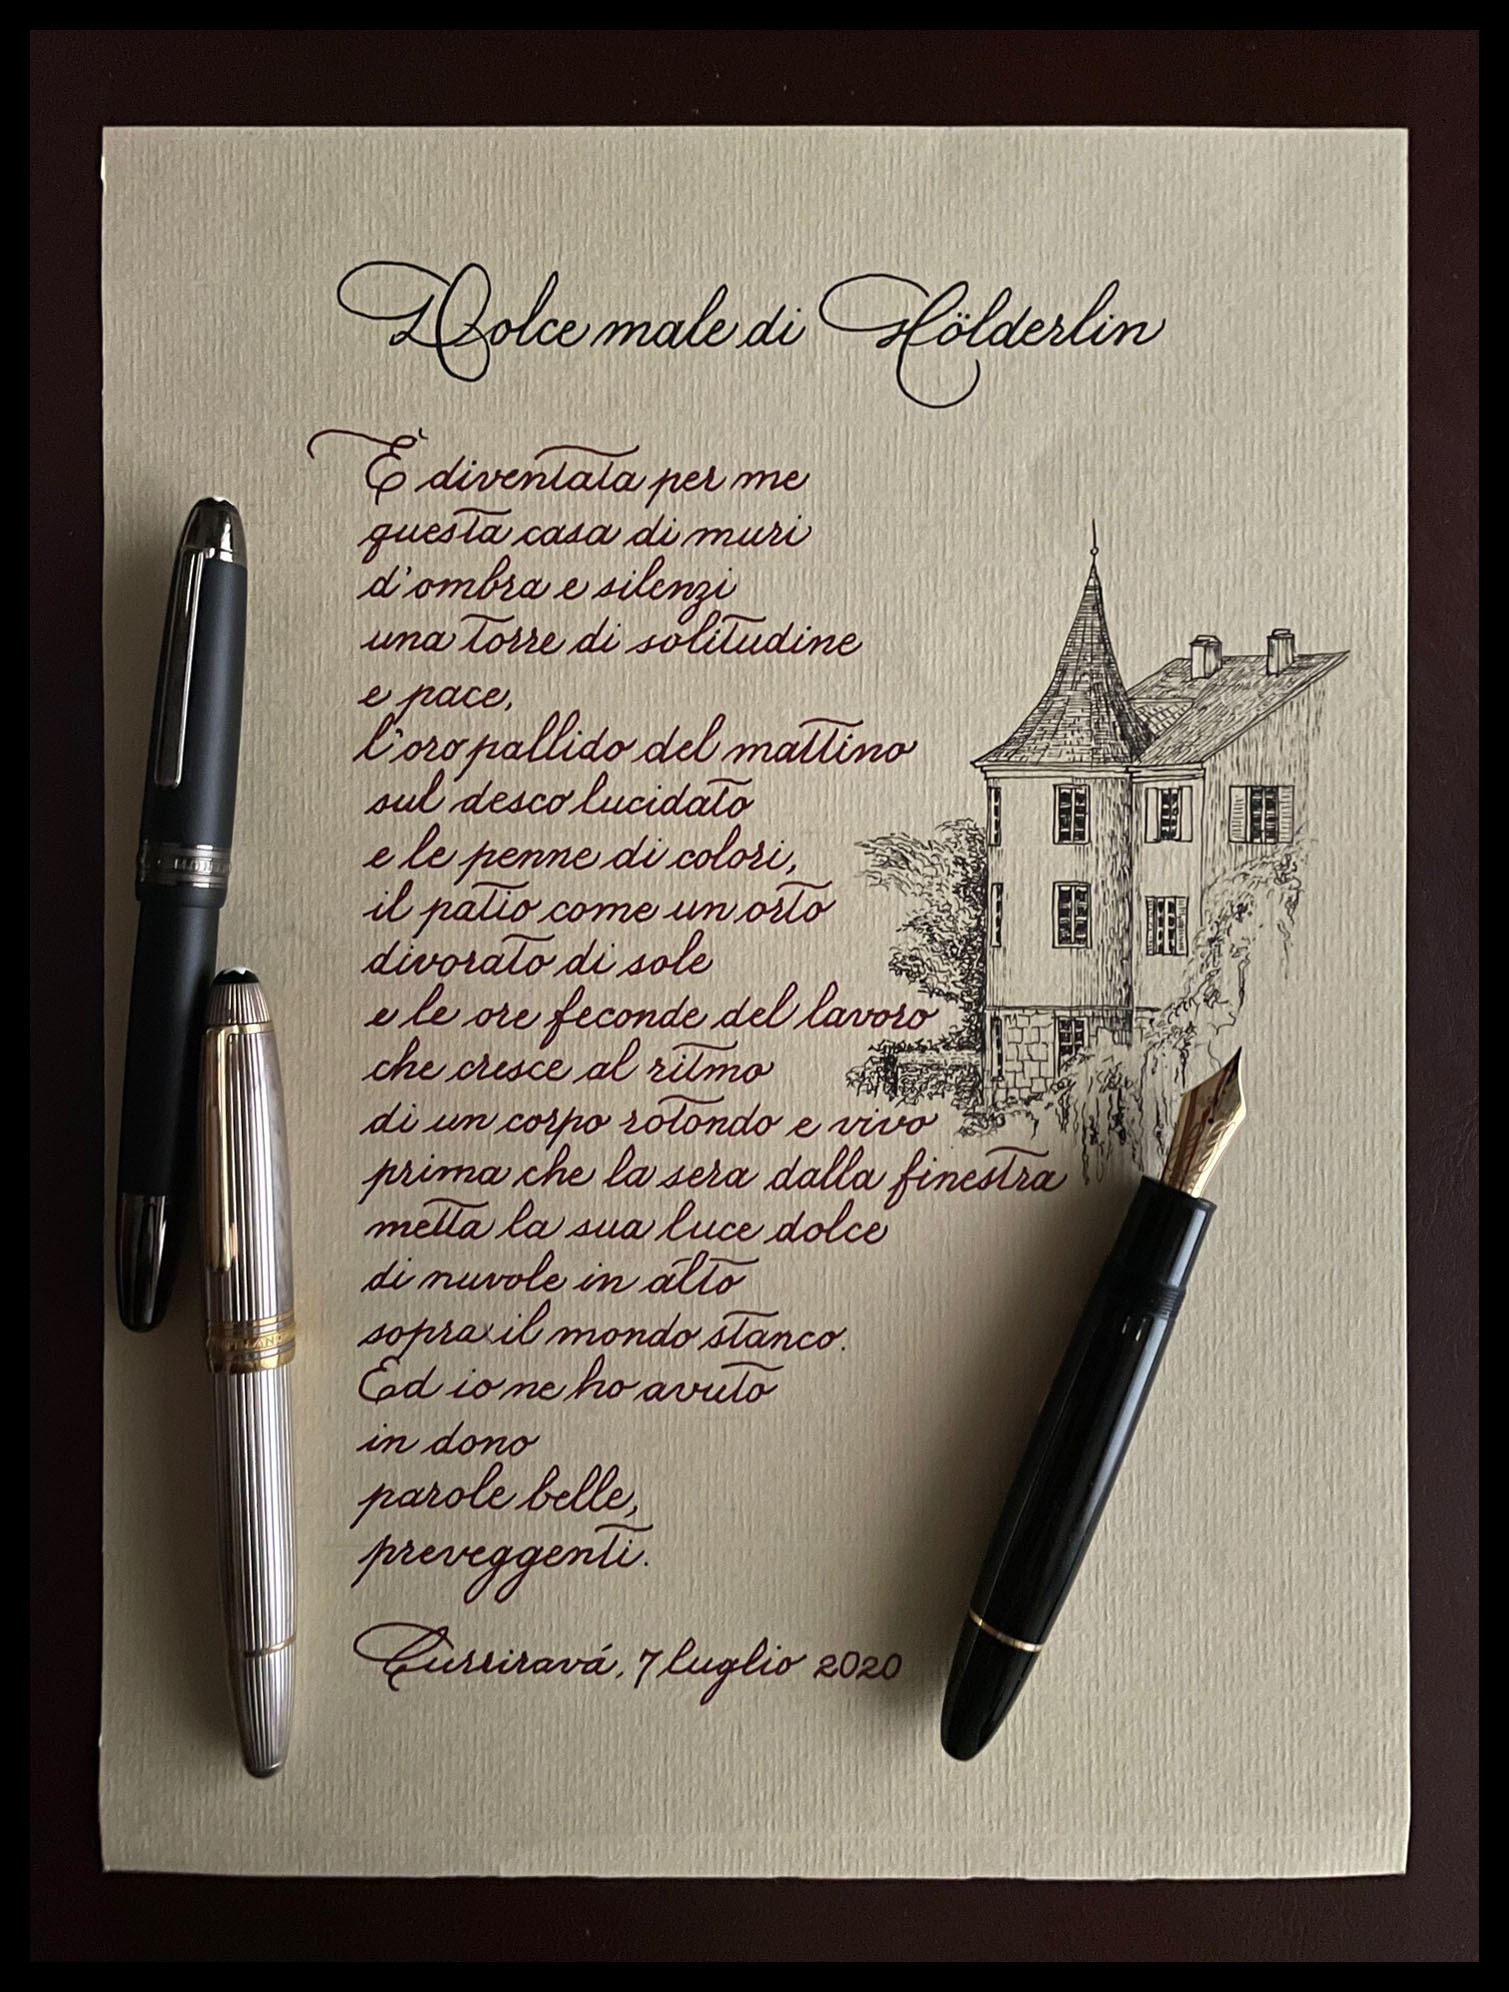 Dolce male di Hölderlin
È diventata per me
questa casa di muri
d'ombra e silenzi
una torre di solitudine
e pace,
l'oro pallido del mattino
sul desco lucidato
e le penne di colori,
il patio come un orto
divorato di sole
e le ore feconde del lavoro
che cresce al ritmo
di un corpo rotondo e vivo
prima che la sera dalla finestra
metta la sua luce dolce
di nuvole in alto
sopra il mondo stanco.
Ed io ne ho avuto
in dono
parole belle,
preveggenti.
Curriravá, 7 luglio 2020